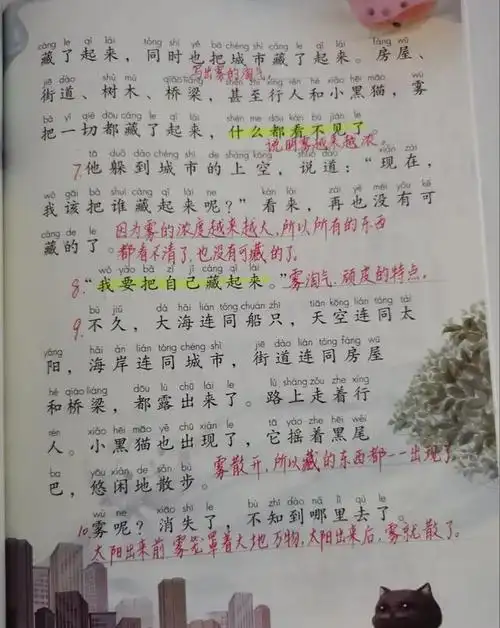 cáng le qǐ lái tóng shí yě bǎ chéng shì cáng le qǐ lái fáng wū
藏了起来，同时也把城市藏了起来。房屋、
写出雾的淘气。
jiē dào shù mù qiáo liáng shèn zhì xíng rén hé xiǎo hēi māo wù
街道、树木、桥梁，甚至行人和小黑猫，雾
bǎ yí qiè dōu cáng le qǐ lái shén me dōu kàn bú jiàn le
把一切都藏了起来，什么都看不见了。
说明雾越来越浓。
tā duǒ dào chéng shì de shàng kōng shuō dào xiàn zài
7.他躲到城市的上空，说道：“现在，
wǒ gāi bǎ shuí cáng qǐ lái ne kàn lái zài yě méi yǒu kě
我该把谁藏起来呢？”看来，再也没有可
cáng de le
藏的了。
因为雾的浓度越来越大，所以所有的东西
都看不清了，也没有可藏的了。
wǒ yào bǎ zì jǐ cáng qǐ lái
8.“我要把自己藏起来。”雾淘气、顽皮的特点。
bù jiǔ dà hǎi lián tóng chuán zhī tiān kōng lián tóng tài
9.不久，大海连同船只，天空连同太
yáng hǎi àn lián tóng chéng shì jiē dào lián tóng fáng wū
阳，海岸连同城市，街道连同房屋
hé qiáo liáng dōu lù chū lái le lù shàng zǒu zhe xíng
和桥梁，都露出来了。路上走着行
rén xiǎo hēi māo yě chū xiàn le tā yáo zhe hēi wěi
人。小黑猫也出现了，它摇着黑尾
ba yōu xián de sàn bù
巴，悠闲地散步。
雾散开，所以藏的东西都一一出现了
wù ne xiāo shī le bù zhī dào nǎ lǐ qù le
10.雾呢？消失了，不知到哪里去了。
太阳出来前雾笼罩着大地万物，太阳出来后，雾就散了。